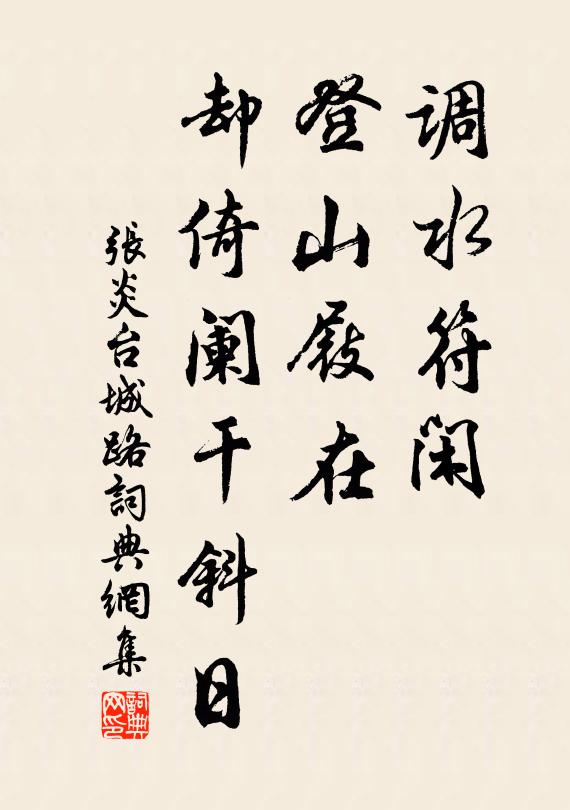 调水符闲
登山屐在
却倚阑干斜日
張炎台城路詞典網集
詞典网印